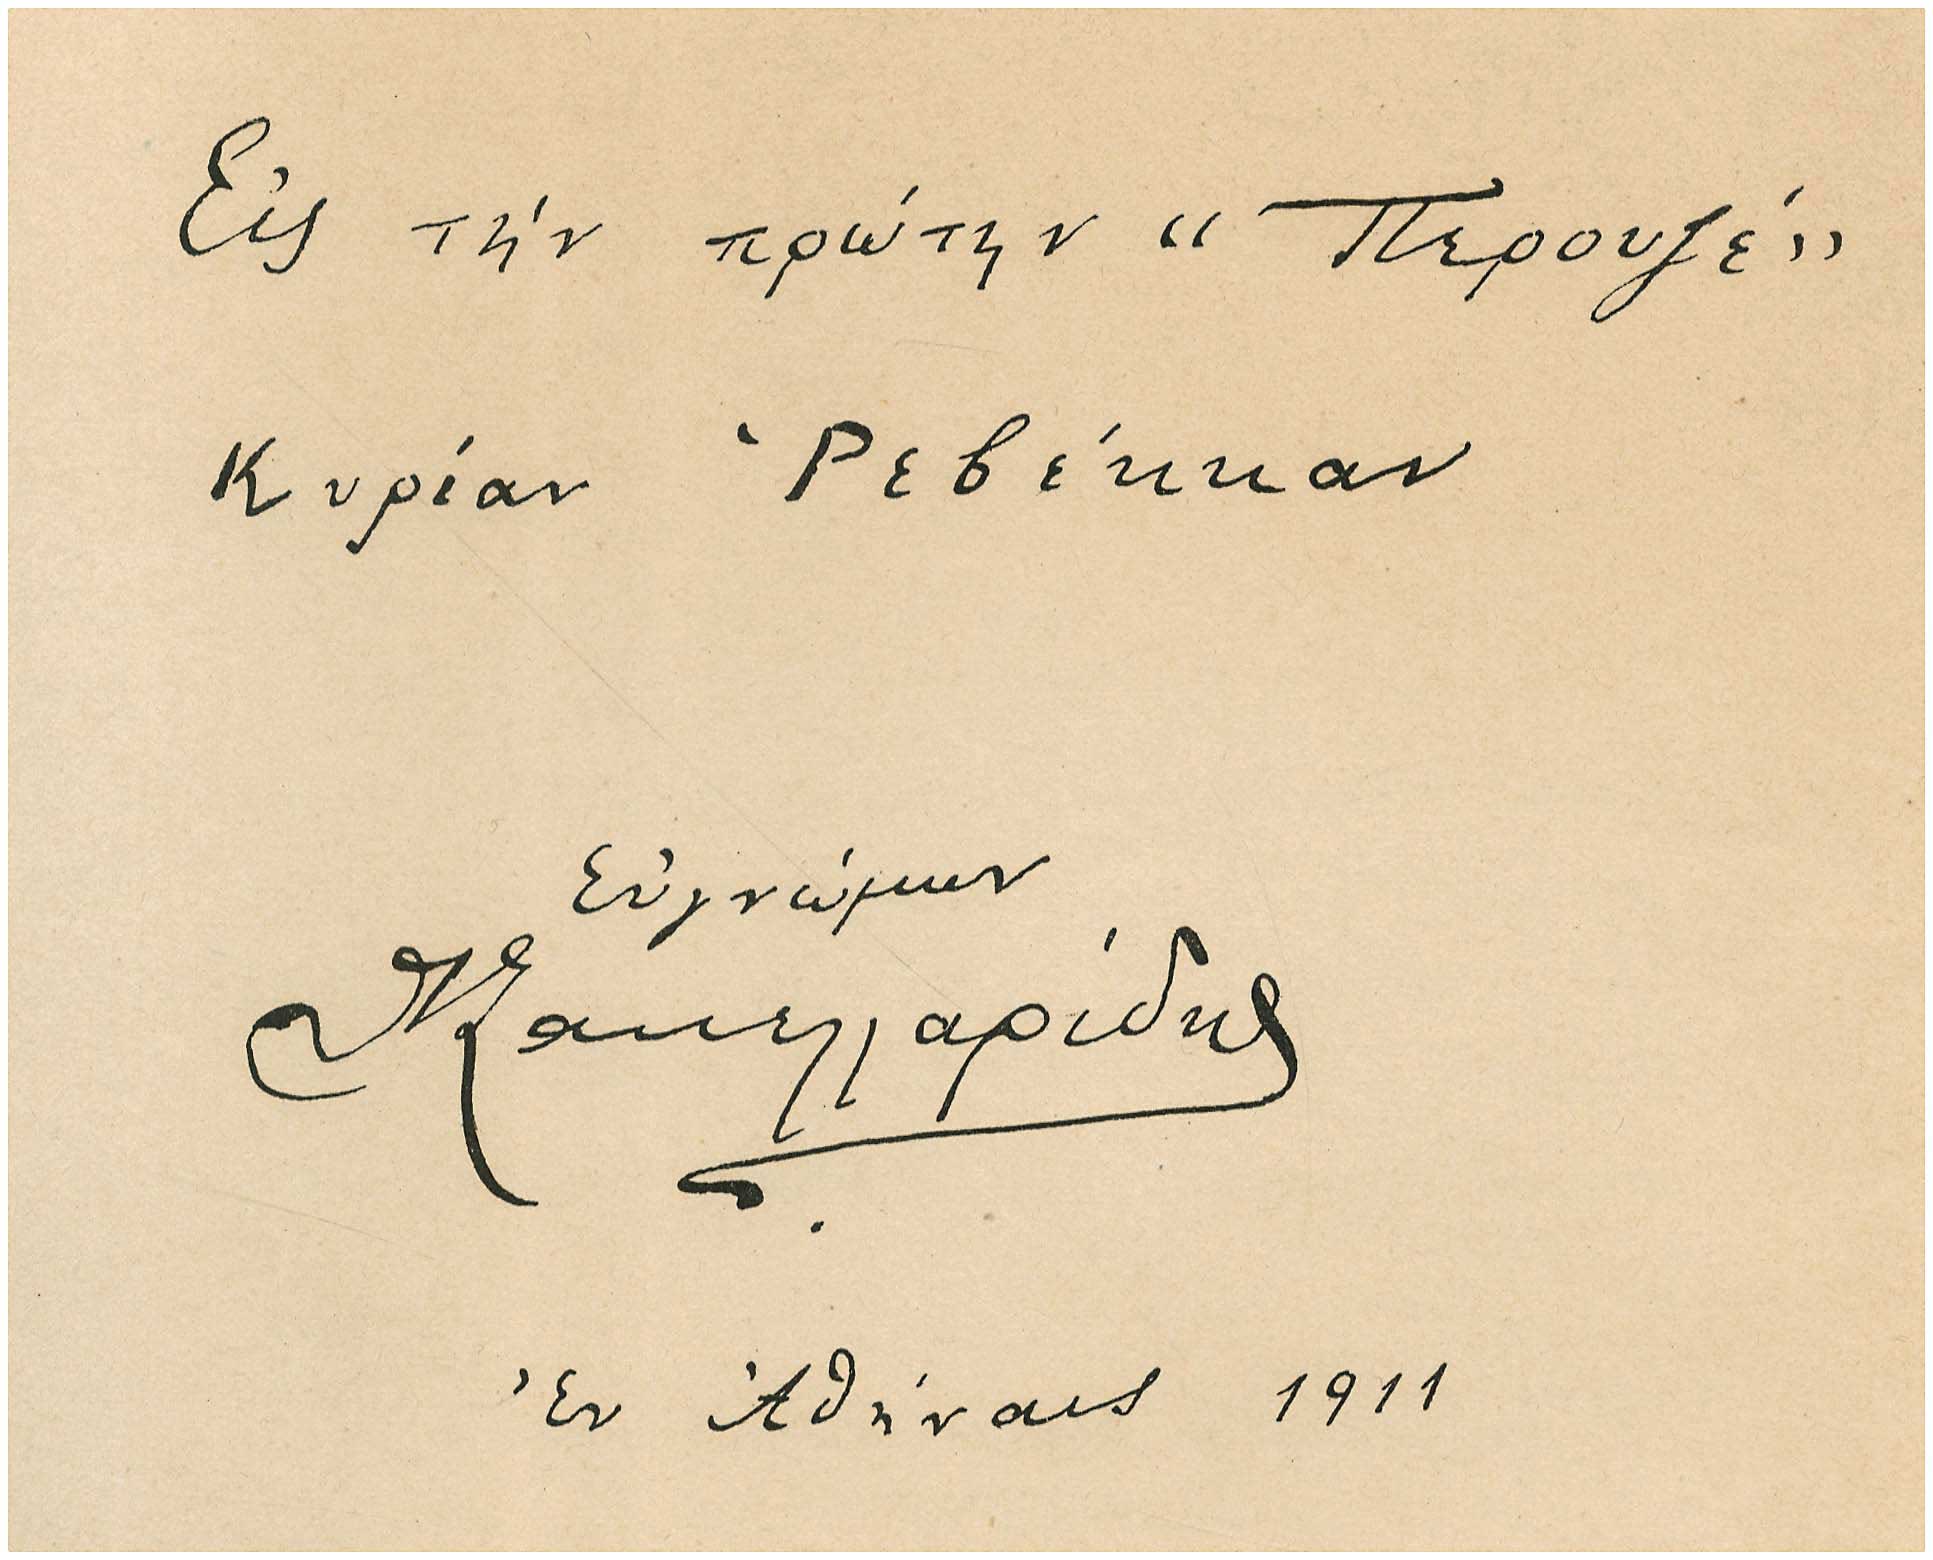 Εἰς τήν πρώτην “Περουζέ”
Κυρίαν Ῥεβέκκαν
Εὐγνώμων
Θ Σακελλαρίδης
Ἐν Ἀθήναις 1911